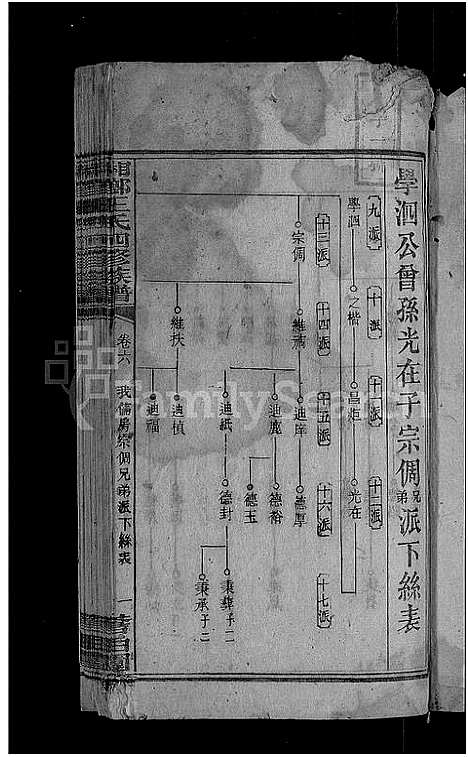 學泗公曾孫光在子宗倜兄弟派下絲表
九派
十派
十一派
十二派
學泗
之楷
昌炬
光在
十三派
十四派
十五派
十六派
十七派
宗倜
維禱
迪庠
德厚
迪鹿
德裕
德玉
維扶
迪紙
德封
秉彝子二
秉承子二
迪楨
迪福
湘鄉王氏四修族譜
卷六
我儒房宗倜兄弟派下絲表
一
FamilySearch